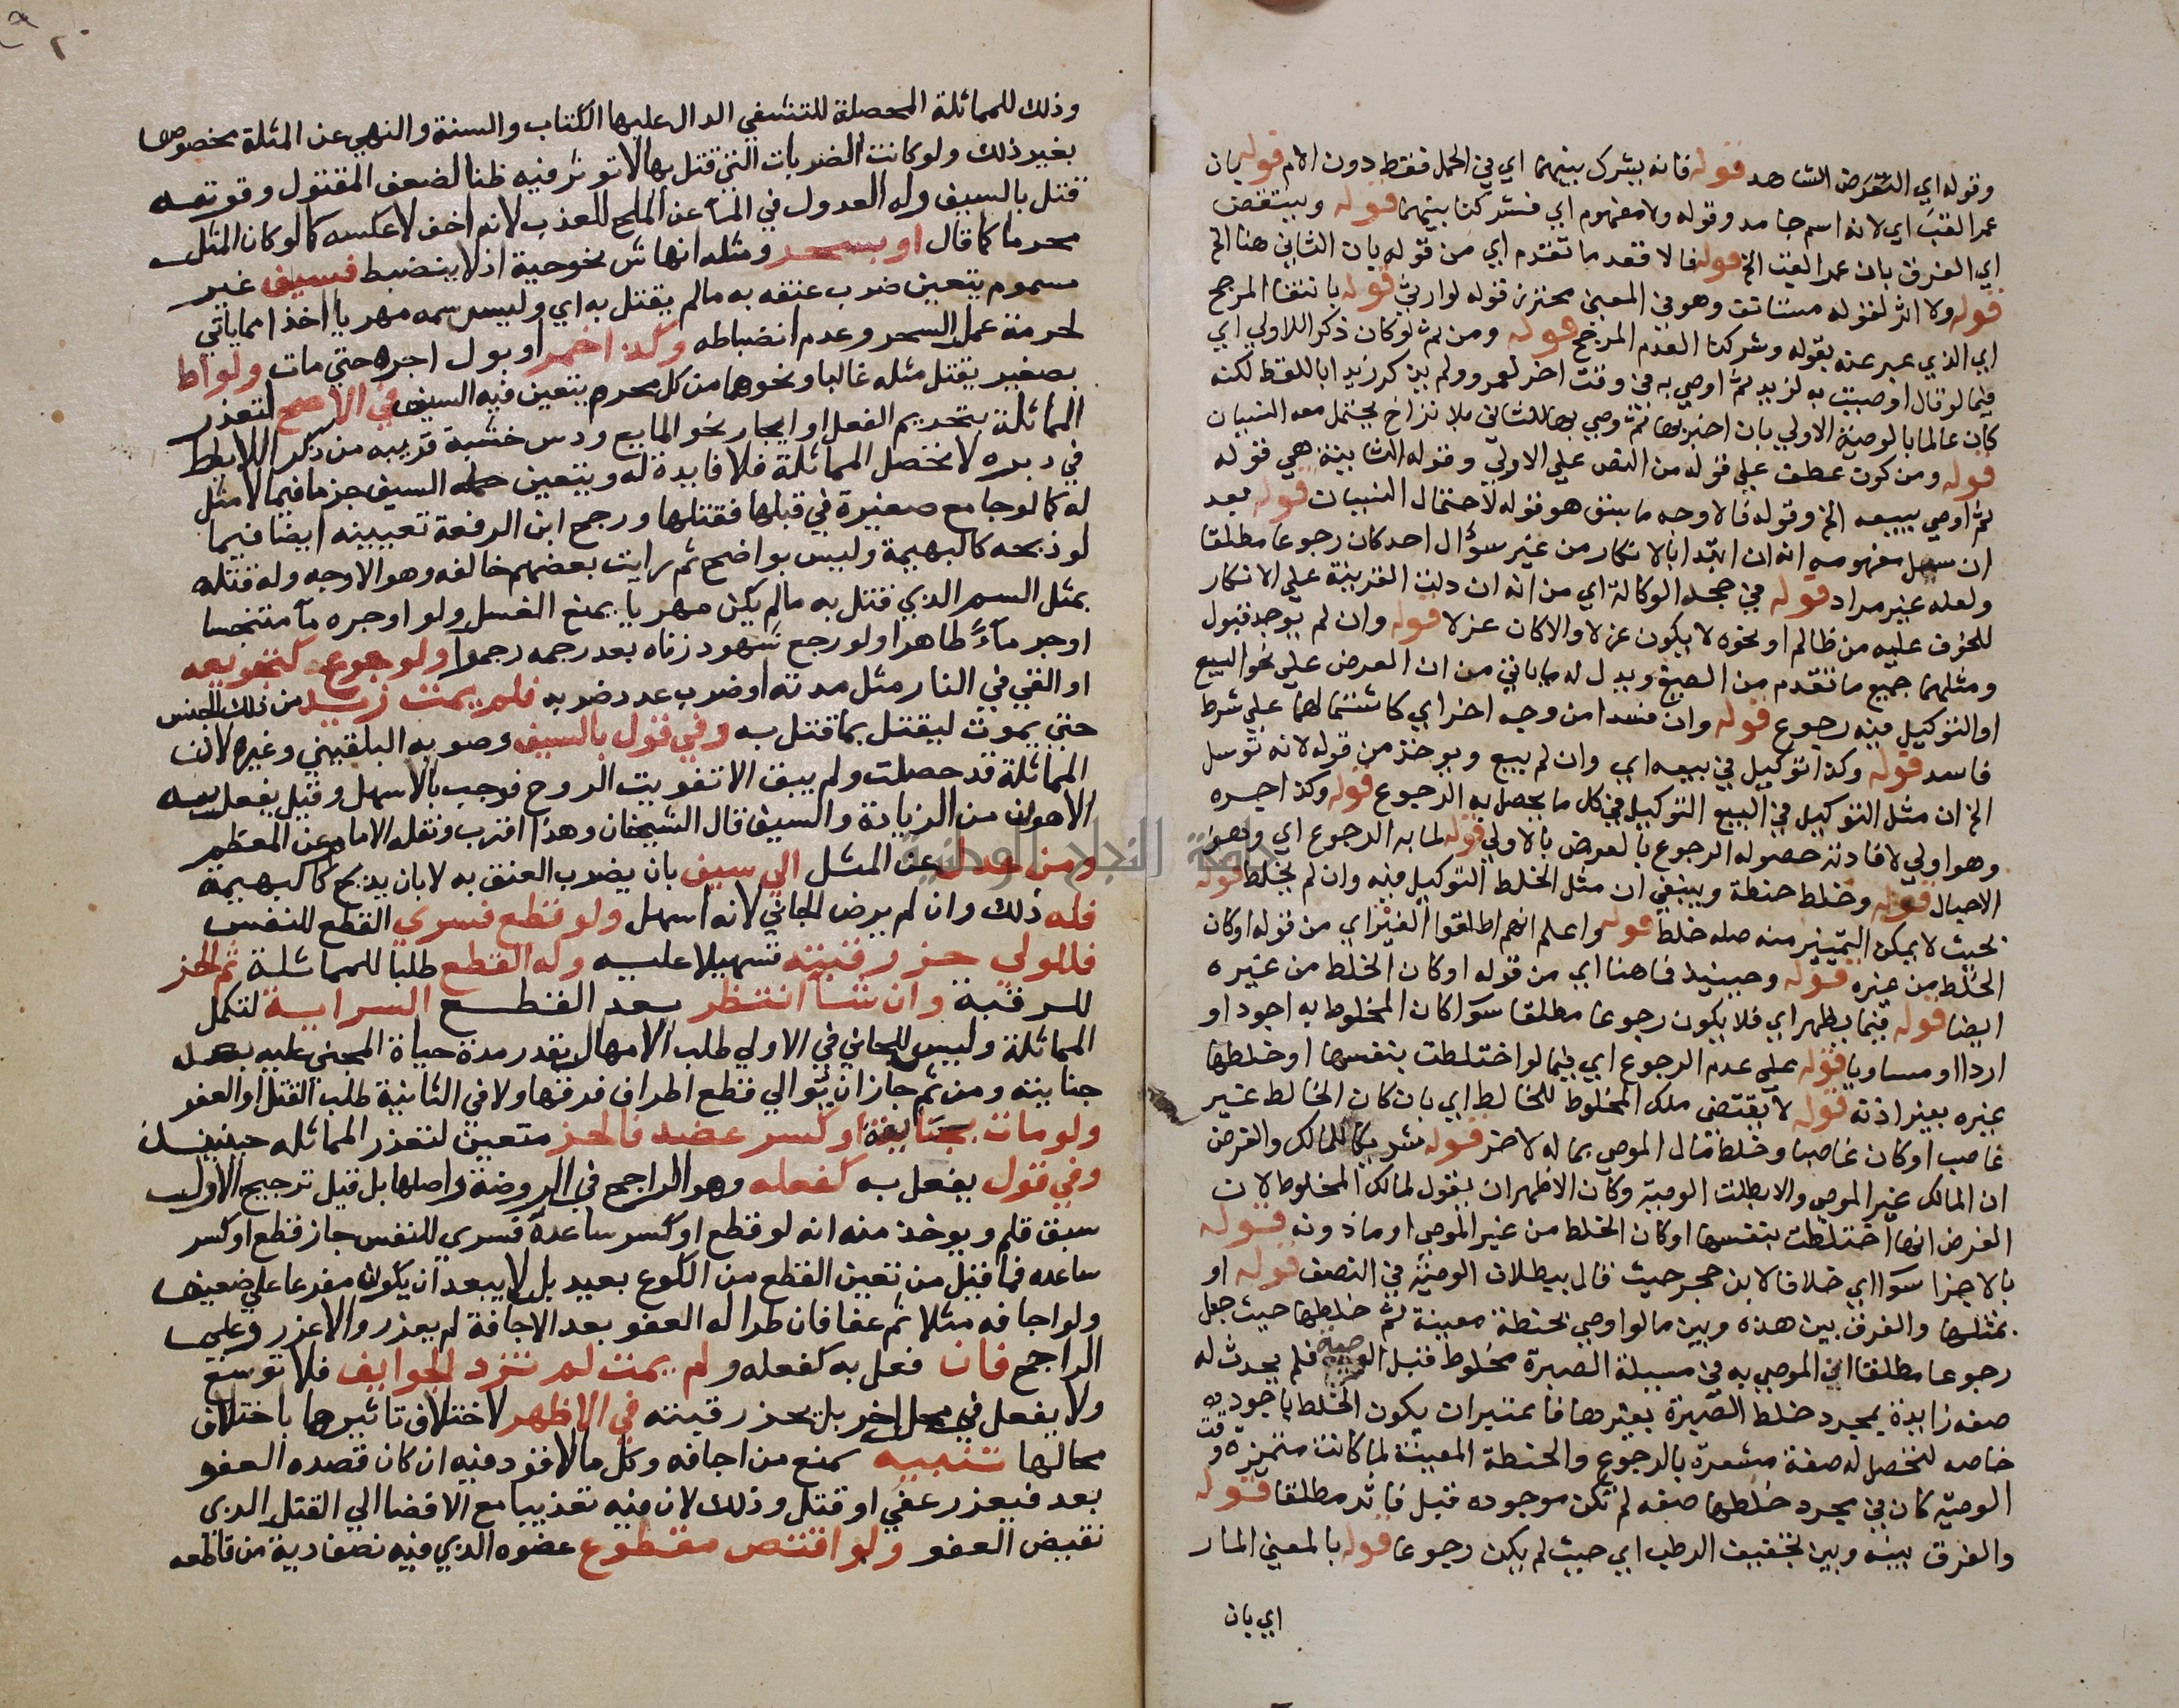 وقوله اي التعرض الشاهد قوله فانه يشرك بينهما اي في الحمل فقط دون الام قوله بان
عمرا لقب اي لانه اسم جامد وقوله ولا مفهوم اي فشركنا بينهما قوله وينتقض
اي الفرق بان عمرا لقب الخ قوله فالا فقد ما تقدم اي من قوله بان الثاني هنا الخ
قوله ولا اثر لقوله وهو في المعنى محترز قوله لوارثي قوله بانتفا المرجح
اي الذي عبر عنه بقوله وشركنا لعدم المرجح قوله ومن ثم لو كان ذكر اللاولى اي
فيما لو قال اوصيت به لزيد ثم اوصي به في وقت اخر لعمرو ولم يذكر زيد اباللفظ لكنه
كان عالما بالوصية الاولي بان اخبر بها ثم وصي بها للثاني بلا تراخ يحتمل معه النسيان
قوله ومن كون عطف علي قوله من النص علي الاولى وقوله الثانية هي قوله
ثم اوصي ببيعه الخ وقوله فالاوجه ما سبق هو قوله لاحتمال النسيان قوله بعد
ان سيل مفهومه انه ان ابتدا بالانكار من غير سؤال احد كان رجوعا مطلقا
ولعله غير مراد قوله في جحد الوكالة اي من انه ان دلت القرينة علي الانكار
للخوف عليه من ظالم او نحوه لا يكون عزلا والا كان عزلا قوله وان لم يوجد قبول
ومثلهما جميع ما تقدم من الصيغ ويدل له ما ياتي من ان العرض علي نحو البيع
او التوكيل فيه رجوع قوله وان فسدا من وجه اخر اي كاشتمالهما علي شرط
فاسد قوله وكذا توكيل في بيعه اي وان لم يبع ويوخذ من قوله لانه توسل
الخ ان مثل التوكيل في البيع التوكيل في كل ما يحصل به الرجوع قوله وكذا حيره
وهو اولي لافادته حصول الرجوع بالعرض بالاولي قوله لما به الرجوع اي وهو
الاحبال قوله وخلط حنطة وينبغي ان مثل الخلط التوكيل فيه وان لم يخلط قوله
بحيث لا يمكن التمييز منه صله خلط قوله واعلم انهم اطلقوا الغير اي من قوله او كان
الخلط من غيره قوله وحينيذ فاهنا اي من قوله او كان الخلط من غيره
ايضا قوله فيما يظهر اي فلا يكون رجوعا مطلقا سوا كان المخلوط به اجود او
اردا او مساويا قوله علي عدم الرجوع اي فيما لو اختلطت بنفسها او خلطها
غيره بغير اذنه قوله لا يقتضي ملك المخلوط للخالط اي بان كان الخالط غير
غاصب او كان غاصبا وخلط مال الموصي بماله لاخر قوله شريكا للمالك والفرض
ان المالك غير الموصي والا بطلت الوصية وكان الاظهر ان يقول لمالك المخلوط لان
الفرض انها اختلطت بنفسها او كان الخلط من غير الموصي او ماذونه قوله
بالاجزا سوا اي خلافا لابن حجر حيث قال ببطلان الوصية في النصف قوله او
بمثلها والفرق بين هذه وبين ما لو اوصي بحنطة معينة ثم خلطها حيث جعل
رجوعا مطلقا ان الموصي به في مسيلة الصبرة مخلوط قبل الوصية فلم يحدث له
صفة زايدة بمجرد خلط الصبرة بغيرها فاعتبران يكون الخلط باجود
خاصه لتحصل له صفة مشعرة بالرجوع والحنطة المعينة لما كانت متميزة وقت
الوصية كان في مجرد خلطها صفه لم تكن موجوده قبل فاثر مطلقا قوله
والفرق بينه وبين تجفيف الرطب اي حيث لم يكن رجوعا قوله بالمعني المار
اي بان
وذلك للمماثلة المحصلة للتشفي الدال عليها الكتاب والسنة والنهي عن المثلة مخصوص
بغير ذلك ولو كانت الضربات التي قتل بها لا توثر فيه ظنا لضعف المقتول وقوته
قتل بالسيف وله العدول في الماء عن الملح للعذب لانه اخف لا عكسه كما لو كان المثل
محرما كما قال او بسحر ومثله انهاش نحو حية اذ لا ينضبط فسيف غير
مسموم يتعين ضرب عنقه به ما لم يقتل به اي وليس سمه مهريا اخذا مما ياتي
لحرمة عمل السحر وعدم انضباطه وكذا خمر او بول اوجره حتي مات ولواط
بصغير يقتل مثله غالبا ونحوهما من كل محرم يتعين فيه السيف في الاصح لتعذر
المماثلة بتحريم الفعل او ايجار نحو المايع ودس خشبة قريبه من ذكر اللايط
في دبره لا تحصل المماثلة فلا فايدة له ويتعين السيف جزما فيما لا مثل
له كما لو جامع صغيرة في قبلها فقتلها ورجح ابن الرفعة تعيينه ايضا فيما
لو ذبحه كالبهيمة وليس بواضح ثم رايت بعضهم خالفه وهو الاوجه وله قتله
بمثل السم الذي قتل به ما لم يكن مهريا يمنع الغسل ولو اوجره ماء متنجسا
اوجر ماءً طاهرا ولو رجع شهود زناه بعد رجمه رجموا ولو جوع كتجويعه
او القي في النار مثل مدته او ضرب عدد ضربه فلم يمت زيد من ذلك الجنس
حتي يموت ليقتل بما قتل به وفي قول بالسيف وصوبه البلقيني وغيره لان
المماثلة قد حصلت ولم يبق الا تفويت الروح فوجب بالاسهل وقيل يفعل به
الاهون من الزيادة والسيف قال الشيخان وهذا اقرب ونقله الامام عن المعظم
ومن عدل عن المثل الي سيف بان يضرب العنق به لا بان يذبح كالبهيمة
فله ذلك وان لم يرض الجاني لانه اسهل ولو قطع فسري القطع للنفس
فللولي حز رقبته تسهيلا عليه وله القطع طلبا للمماثلة ثم الحز
للرقبة وان شاء انتظر بعد القطع السراية لتكمل
المماثلة وليس للجاني في الاولي طلب الامهال بقدر مدة حياة المجني عليه بعد
جنايته ومن ثم جاز ان يوالي قطع اطراف فرقها ولا في الثانية طلب القتل او العفو
ولو مات بجايفة او كسر عضد فالحز متعين لتعذر المماثله حينيذ
وفي قول يفعل به كفعله وهو الراجح في الروضة واصلها بل قيل ترجيح الاول
سبق قلم ويوخذ منه انه لو قطع او كسر ساعدة فسري للنفس جاز قطع او كسر
ساعده فما قيل من تعين القطع من الكوع بعيد بل لا يبعد ان يكون مفرعا علي ضعيف
ولو اجافه مثلا ثم عفا فان طرا له العفو بعد الاجافة لم يعذر والا عزر وعلي
الراجح فان فعل به كفعله ولم يمت لم تزد الجوايف فلا توسع
ولا يفعل في محل اخر بل تحز رقبته في الاظهر لاختلاف تاثيرها باختلاف
محالها تنبيه يمنع من اجافه وكل ما لا قود فيه ان كان قصده العفو
بعد فيعزر عفي او قتل وذلك لان فيه تعذيبا مع الافضا الي القتل الذي
نقيض العفو ولو اقتص مقطوع عضوه الذي فيه نصف دية من قاطعه
جامعة النجاح الوطنية